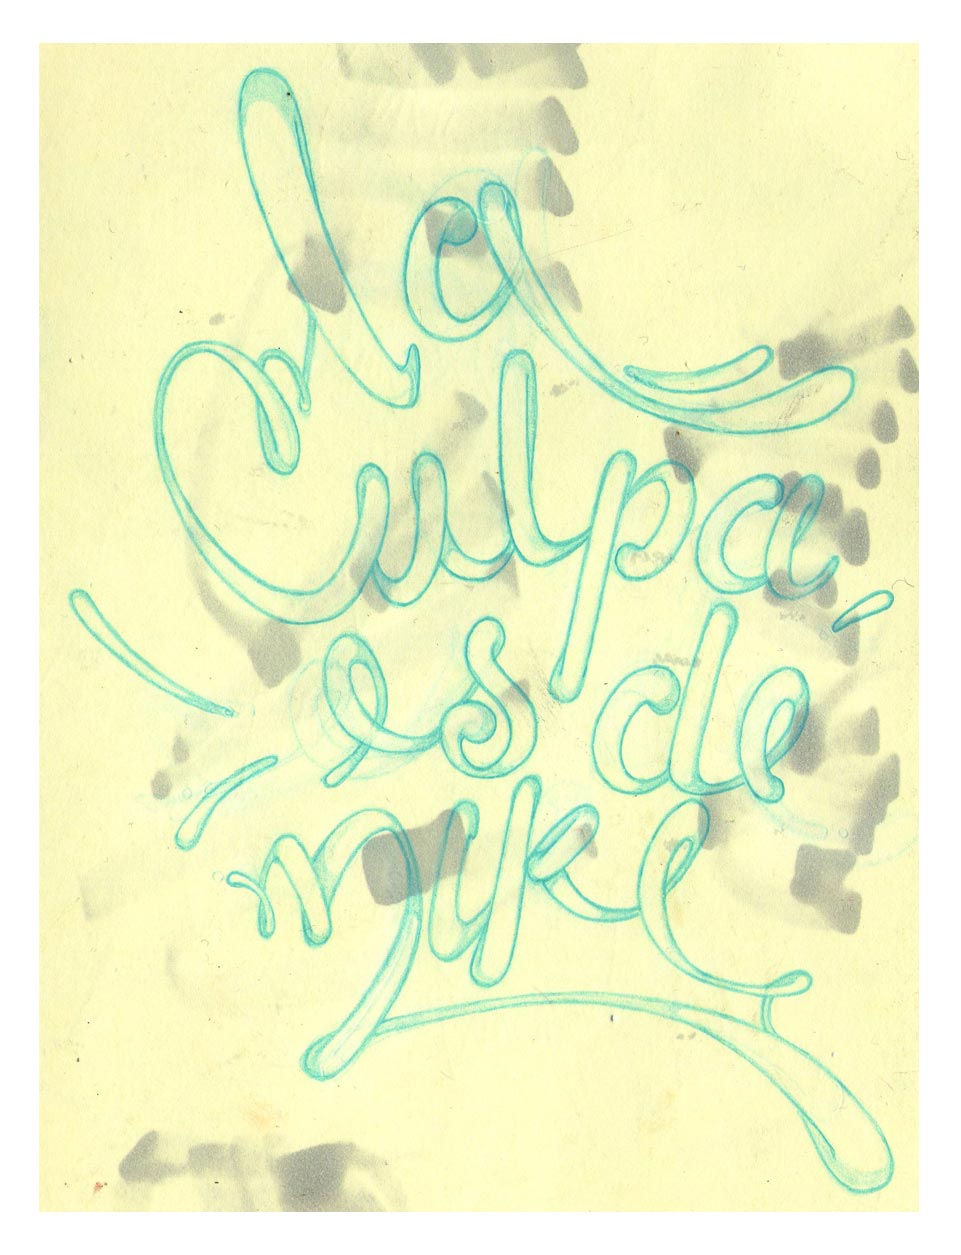 la
Culpa
es de
mike